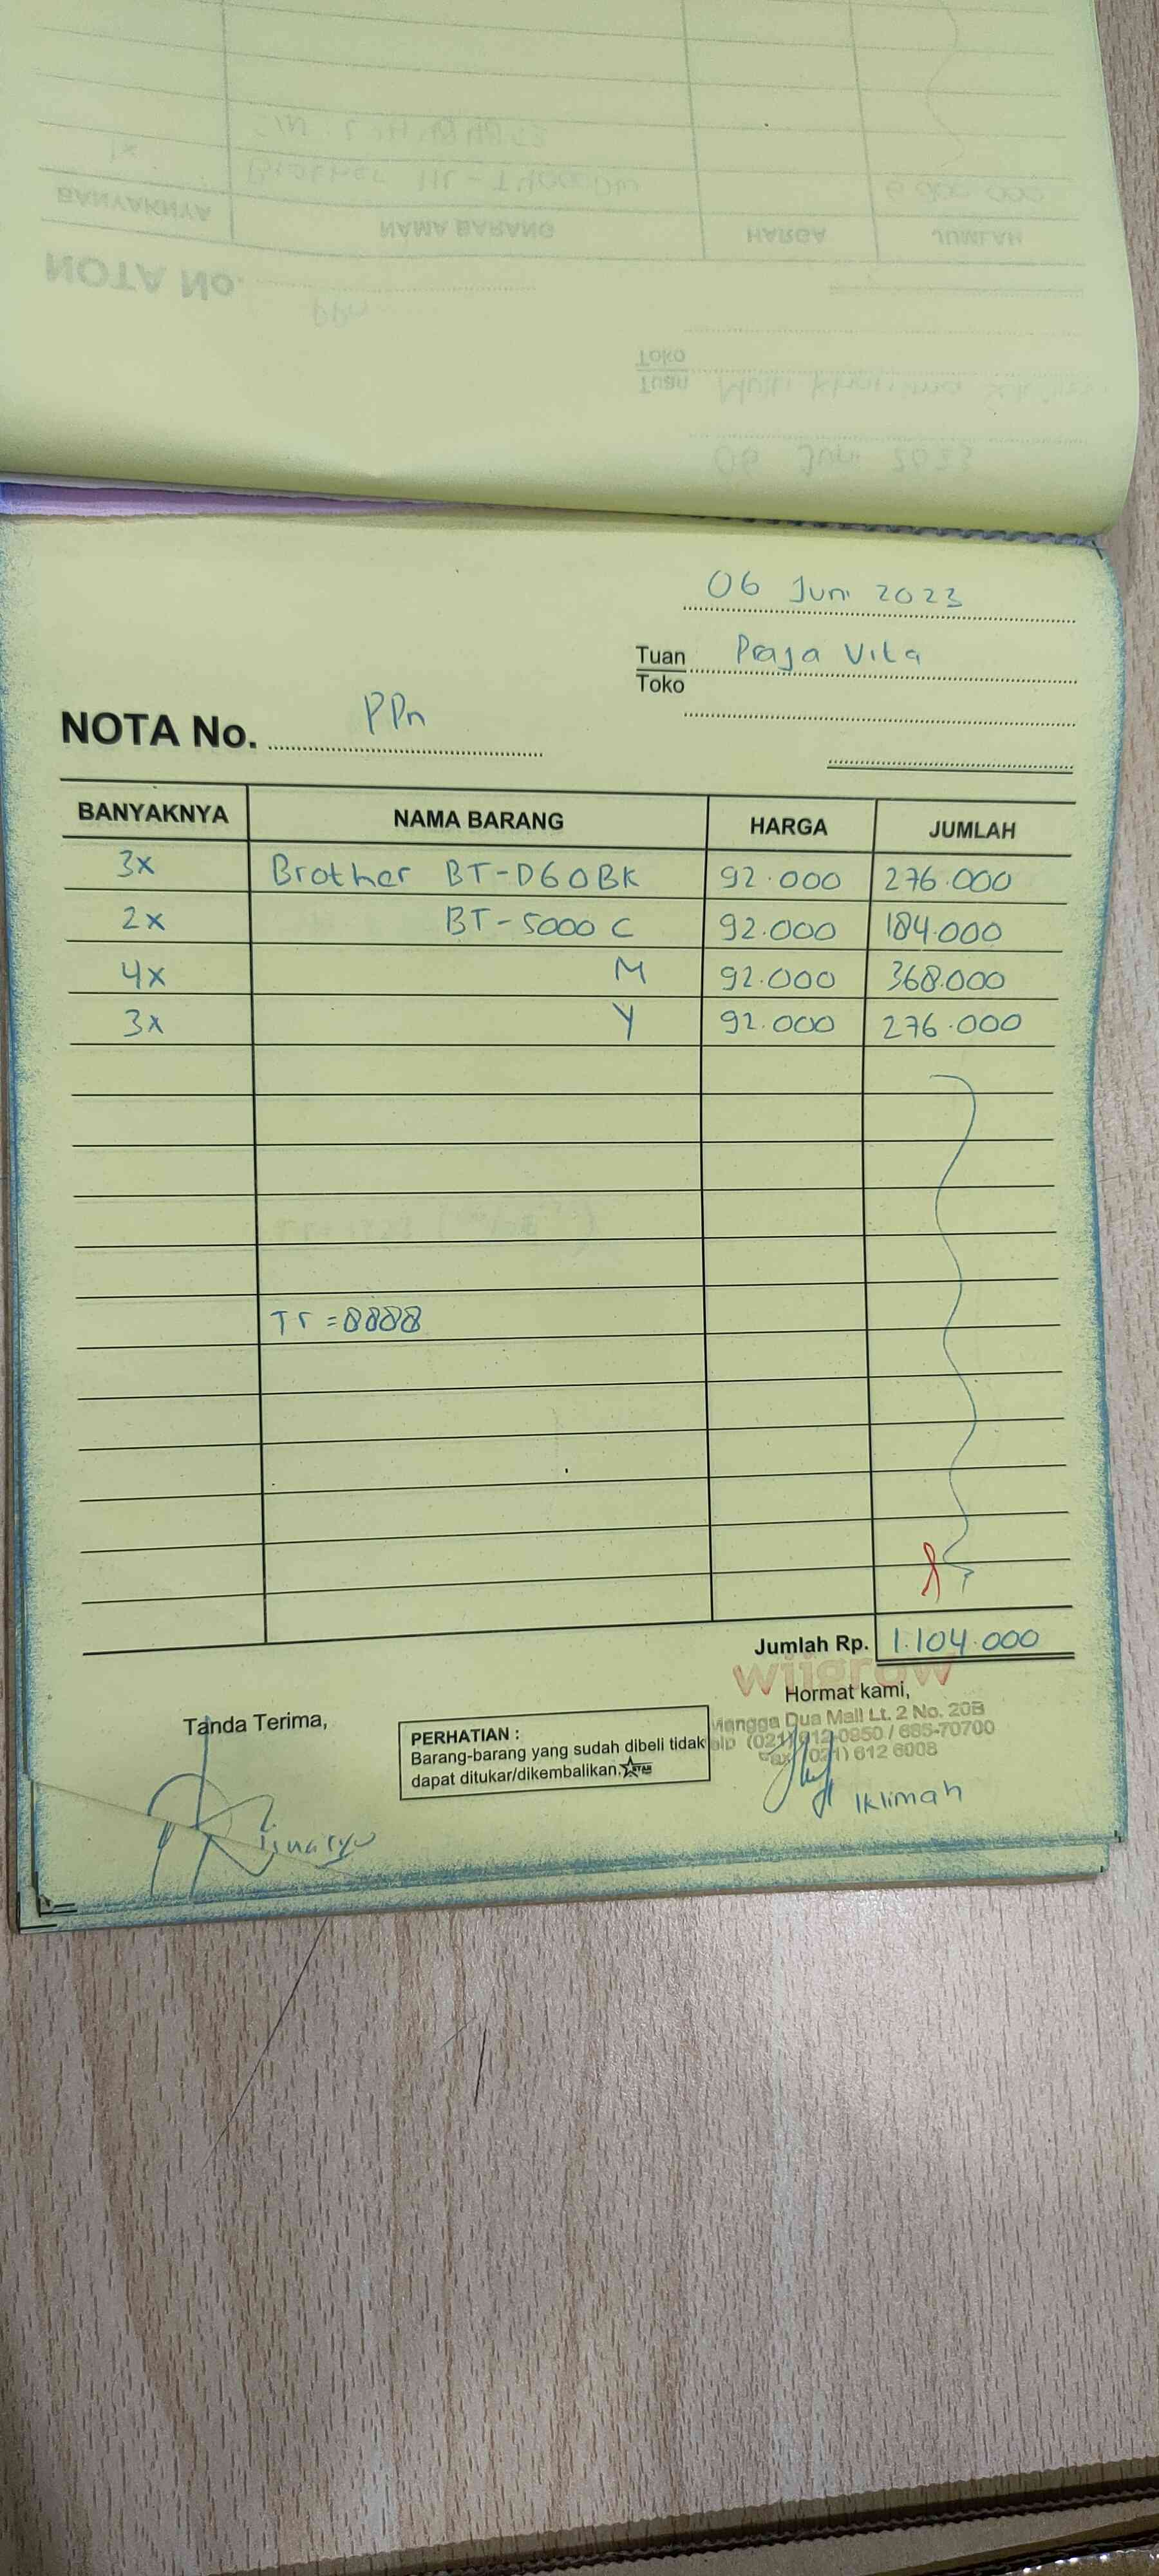 BANYAKNYA NAMA BARANG HARGA JUMLAH
NOTA No. PPn
Tuan
Toko
06 Juni 2023
06 Juni 2023
Tuan Praja Vita
Toko
NOTA No. PPn
BANYAKNYA NAMA BARANG HARGA JUMLAH
3x Brother BT-D60BK 92.000 276.000
2x BT-5000 C 92.000 184.000
4x M 92.000 368.000
3x Y 92.000 276.000
Tr = 8888
Jumlah Rp. 1.104.000
wijgrow
Hormat kami,
Tanda Terima,
Mangga Dua Mall Lt. 2 No. 20B
Telp (021) 612 0950 / 685-70700
Fax (021) 612 6008
PERHATIAN :
Barang-barang yang sudah dibeli tidak
dapat ditukar/dikembalikan.
STAR
Iklimah